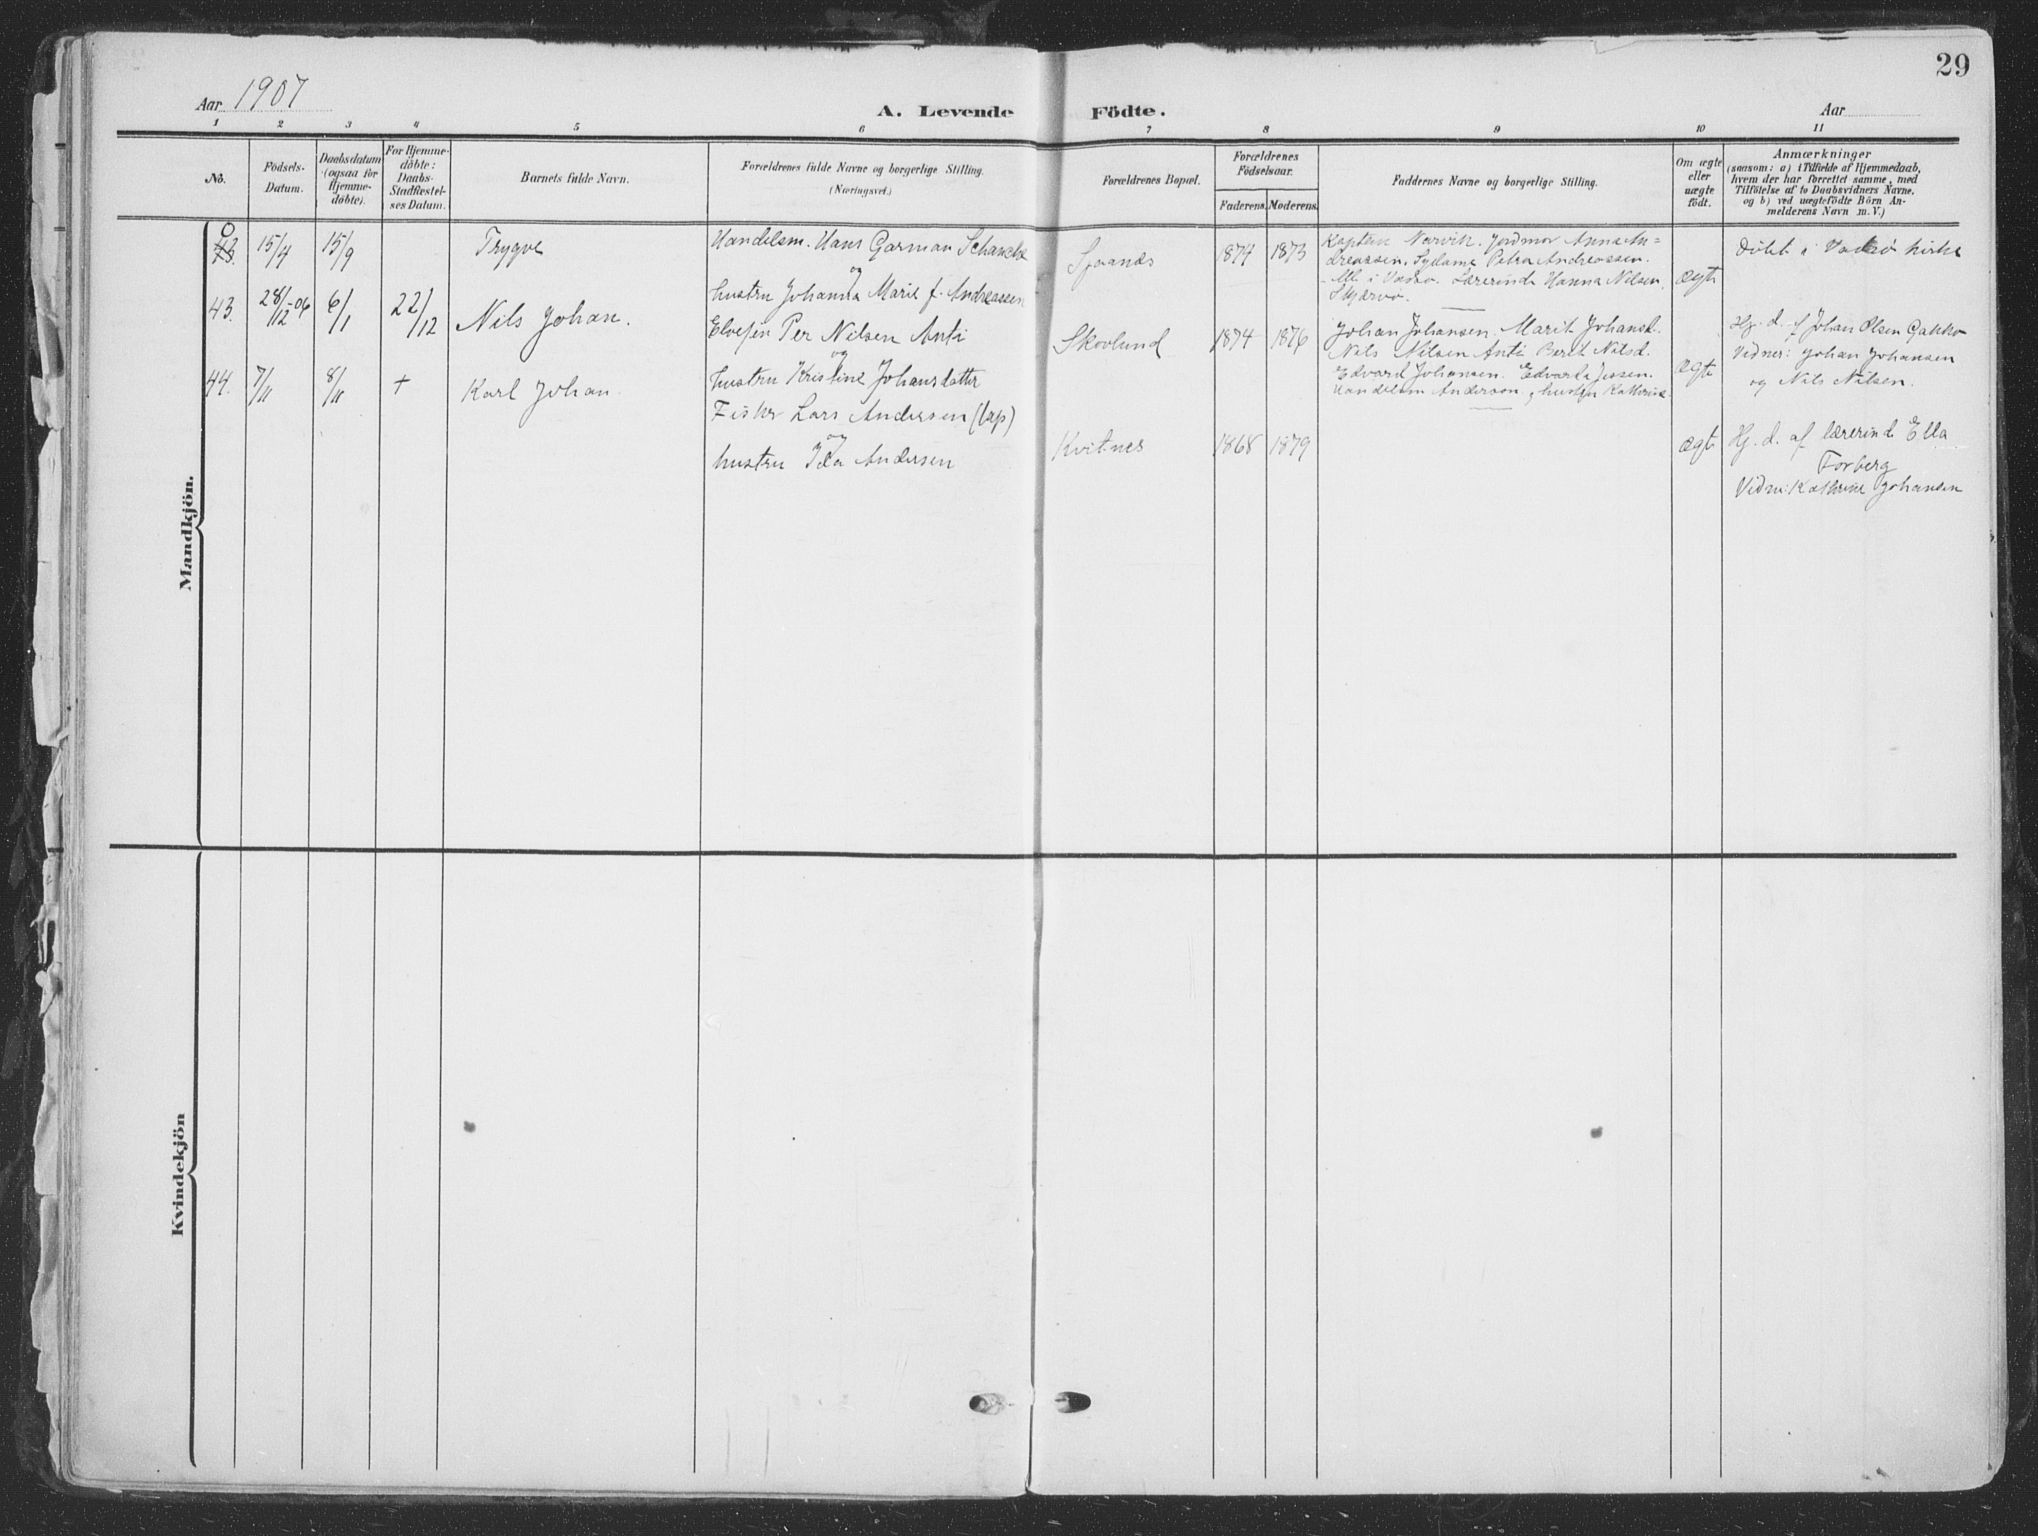 29
Aar 1907
A. Levende Födte.
Aar
1 2 3 4 5 6 7 8 9 10 11
No.
Födsels-
Datum.
Daabsdatum
(ogsaa for
Hjemme-
döbte).
For Hjemme-
döbte:
Daabs-
Stadfæstel-
ses Datum.
Barnets fulde Navn.
Forældrenes fulde Navne og borgerlige Stilling.
(Næringsvei.)
Forældrenes Bopæl.
Forældrenes
Födselsaar.
Faderens. Moderens.
Faddernes Navne og borgerlige Stilling.
Om ægte
eller
uægte
födt.
Anmærkninger
(saasom: a) i Tilfælde af Hjemmedaab,
hvem der har forrettet samme, med
Tilföielse af to Daabsvidners Navne,
og b) ved uægtefödte Börn An-
melderens Navn m. V.)
Mandkjön.
0
43.
15/4
15/9
Trygve
Handelsm. Hans Garman Schanche
og
hustru Johanna Marie f. Andreassen
1874 1873
Kaptein Narvik. Jordmor Anna An-
dreassen. Sydame Petra Andreassen.
Alle i Vadsö. Lærerinde Hanna Nilsen,
Skjærvö.
ægte
Döbt i Vadsö kirke
43.
28/12-06
6/1
22/12
Nils Johan.
Elvefin Per Nilsen Anti
og
hustru Kristine Johansdatter
Skovlund
1874 1876
Johan Johansen. Marit Johansd.
Nils Nilsen Anti Berit Nilsd.
Edvard Johansen. Edvarda Jessen.
Handelsm Anderson, hustru Kathrine
ægte
Hj. d. af Johan Olsen Gakko
Vidner: Johan Johansen
og Nils Nilsen.
44.
7/11
8/11
+
Karl Johan.
Fisker Lars Andersen (lap)
og
hustru Ida Andersen
Kvitnes
1868 1879
ægte
Hj. d. af lærerinde Ella
Forberg
Vidn: Kathrine Johansen
Kvindekjön